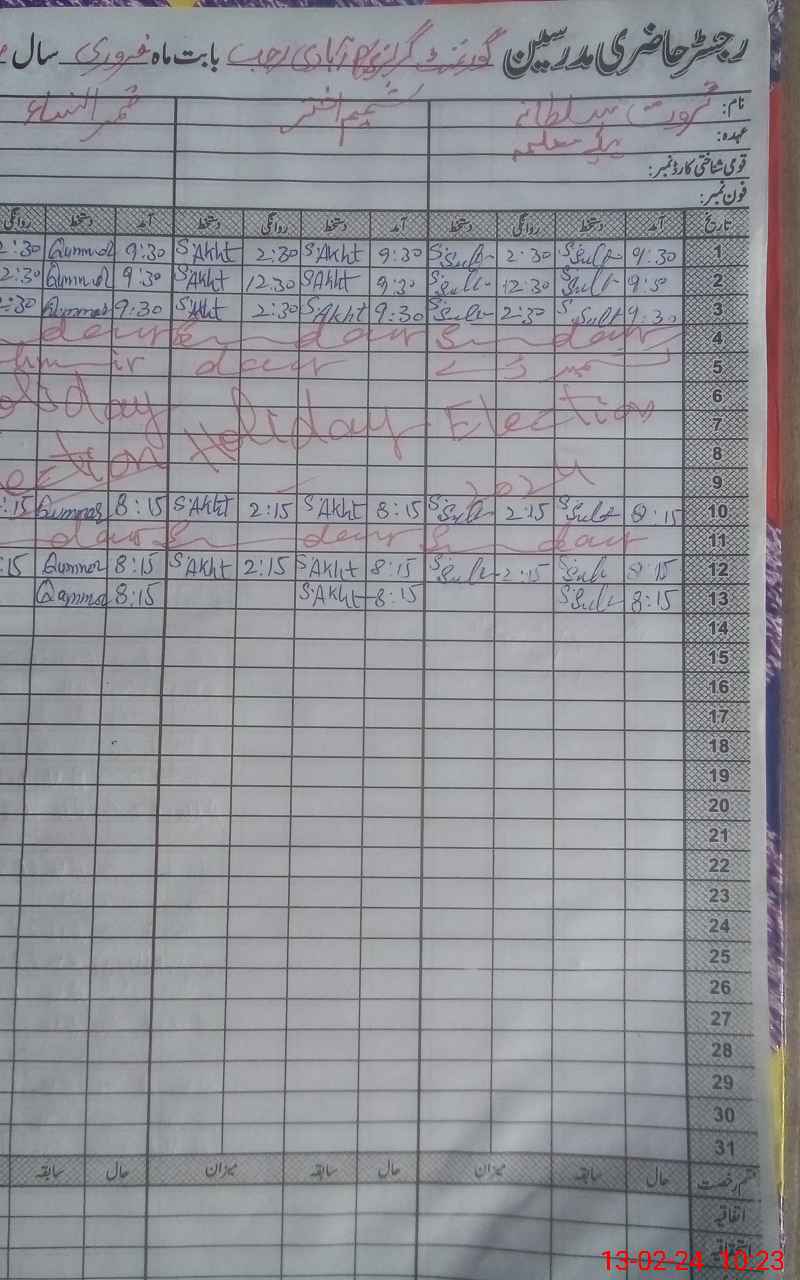 رجسٹر حاضری مدرسین گورنمنٹ گرلز آبادی رجب بابت ماہ فروری سال
نام: سلطانہ شمیم اختر قمر النساء
عہدہ: معلمہ
قومی شناختی کارڈ نمبر:
فون نمبر:
تاریخ آمد دستخط روانگی دستخط آمد دستخط روانگی دستخط آمد دستخط روانگی
1 9:30 S.Sult 2:30 S.Sult 9:30 S.Akht 2:30 S.Akht 9:30 Qummar 2:30
2 9:30 S.Sult 12:30 S.Sult 9:30 S.Akht 12:30 S.Akht 9:30 Qummar 2:30
3 9:30 S.Sult 2:30 S.Sult 9:30 S.Akht 2:30 S.Akht 9:30 Qummar 2:30
4
5 کشمیر ڈے Kashmir day
6
7 Holiday Holiday Election
8 Election
9 2024
10 8:15 S.Sult 2:15 S.Sult 8:15 S.Akht 2:15 S.Akht 8:15 Qummar :15
11
12 8:15 S.Sult 2:15 S.Sult 8:15 S.Akht 2:15 S.Akht 8:15 Qummar :15
13 8:15 S.Sult 8:15 S.Akht 8:15 Qammar
14
15
16
17
18
19
20
21
22
23
24
25
26
27
28
29
30
31
قسم رخصت حال سابقہ میزان حال سابقہ میزان حال سابقہ
اتفاقیہ
13-02-24 10:23